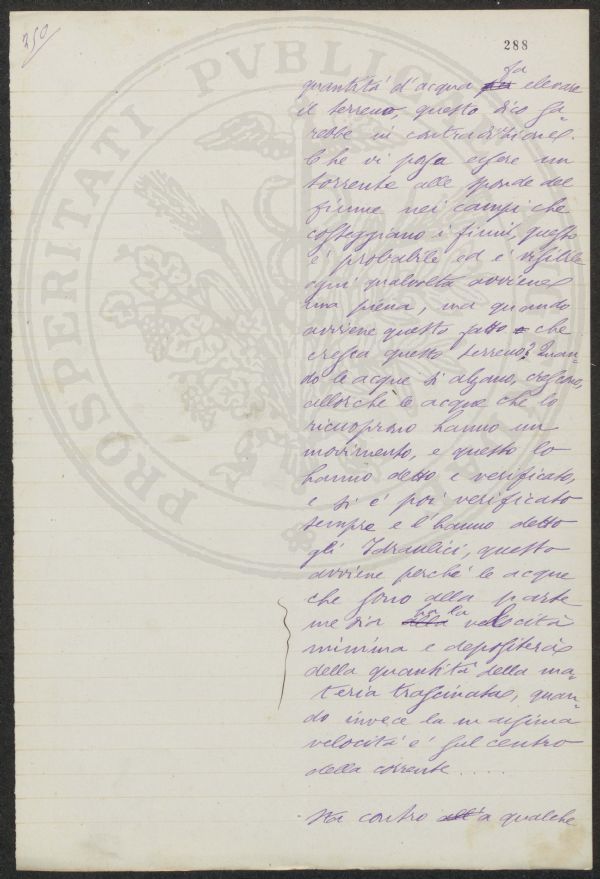 350
288
PROSPERITATI PVBLICAE
fa
quantità d'acqua elevare
il terreno, questo dico sa-
rebbe in contradizione.
Che vi possa essere un
torrente alle sponde del
fiume nei campi che
costeggiano i fiumi, questo
è probabile ed è visibile
ogni qualvolta avviene
una piena, ma quando
avviene questo fatto e che
cresca questo terreno? Quan-
do le acque si alzano, crescono,
allorchè le acque che lo
ricuoprono hanno un
movimento, e questo lo
hanno detto e verificato,
e si è poi verificato
sempre e l'hanno detto
gli Idraulici, questo
avviene perchè le acque
che sono alla parte
ha la
media della velocità
minima e depositerà
della quantità della ma-
teria trascinata, quan-
do invece la massima
velocità è sul centro
della corrente.....
Ha contro all'a qualche